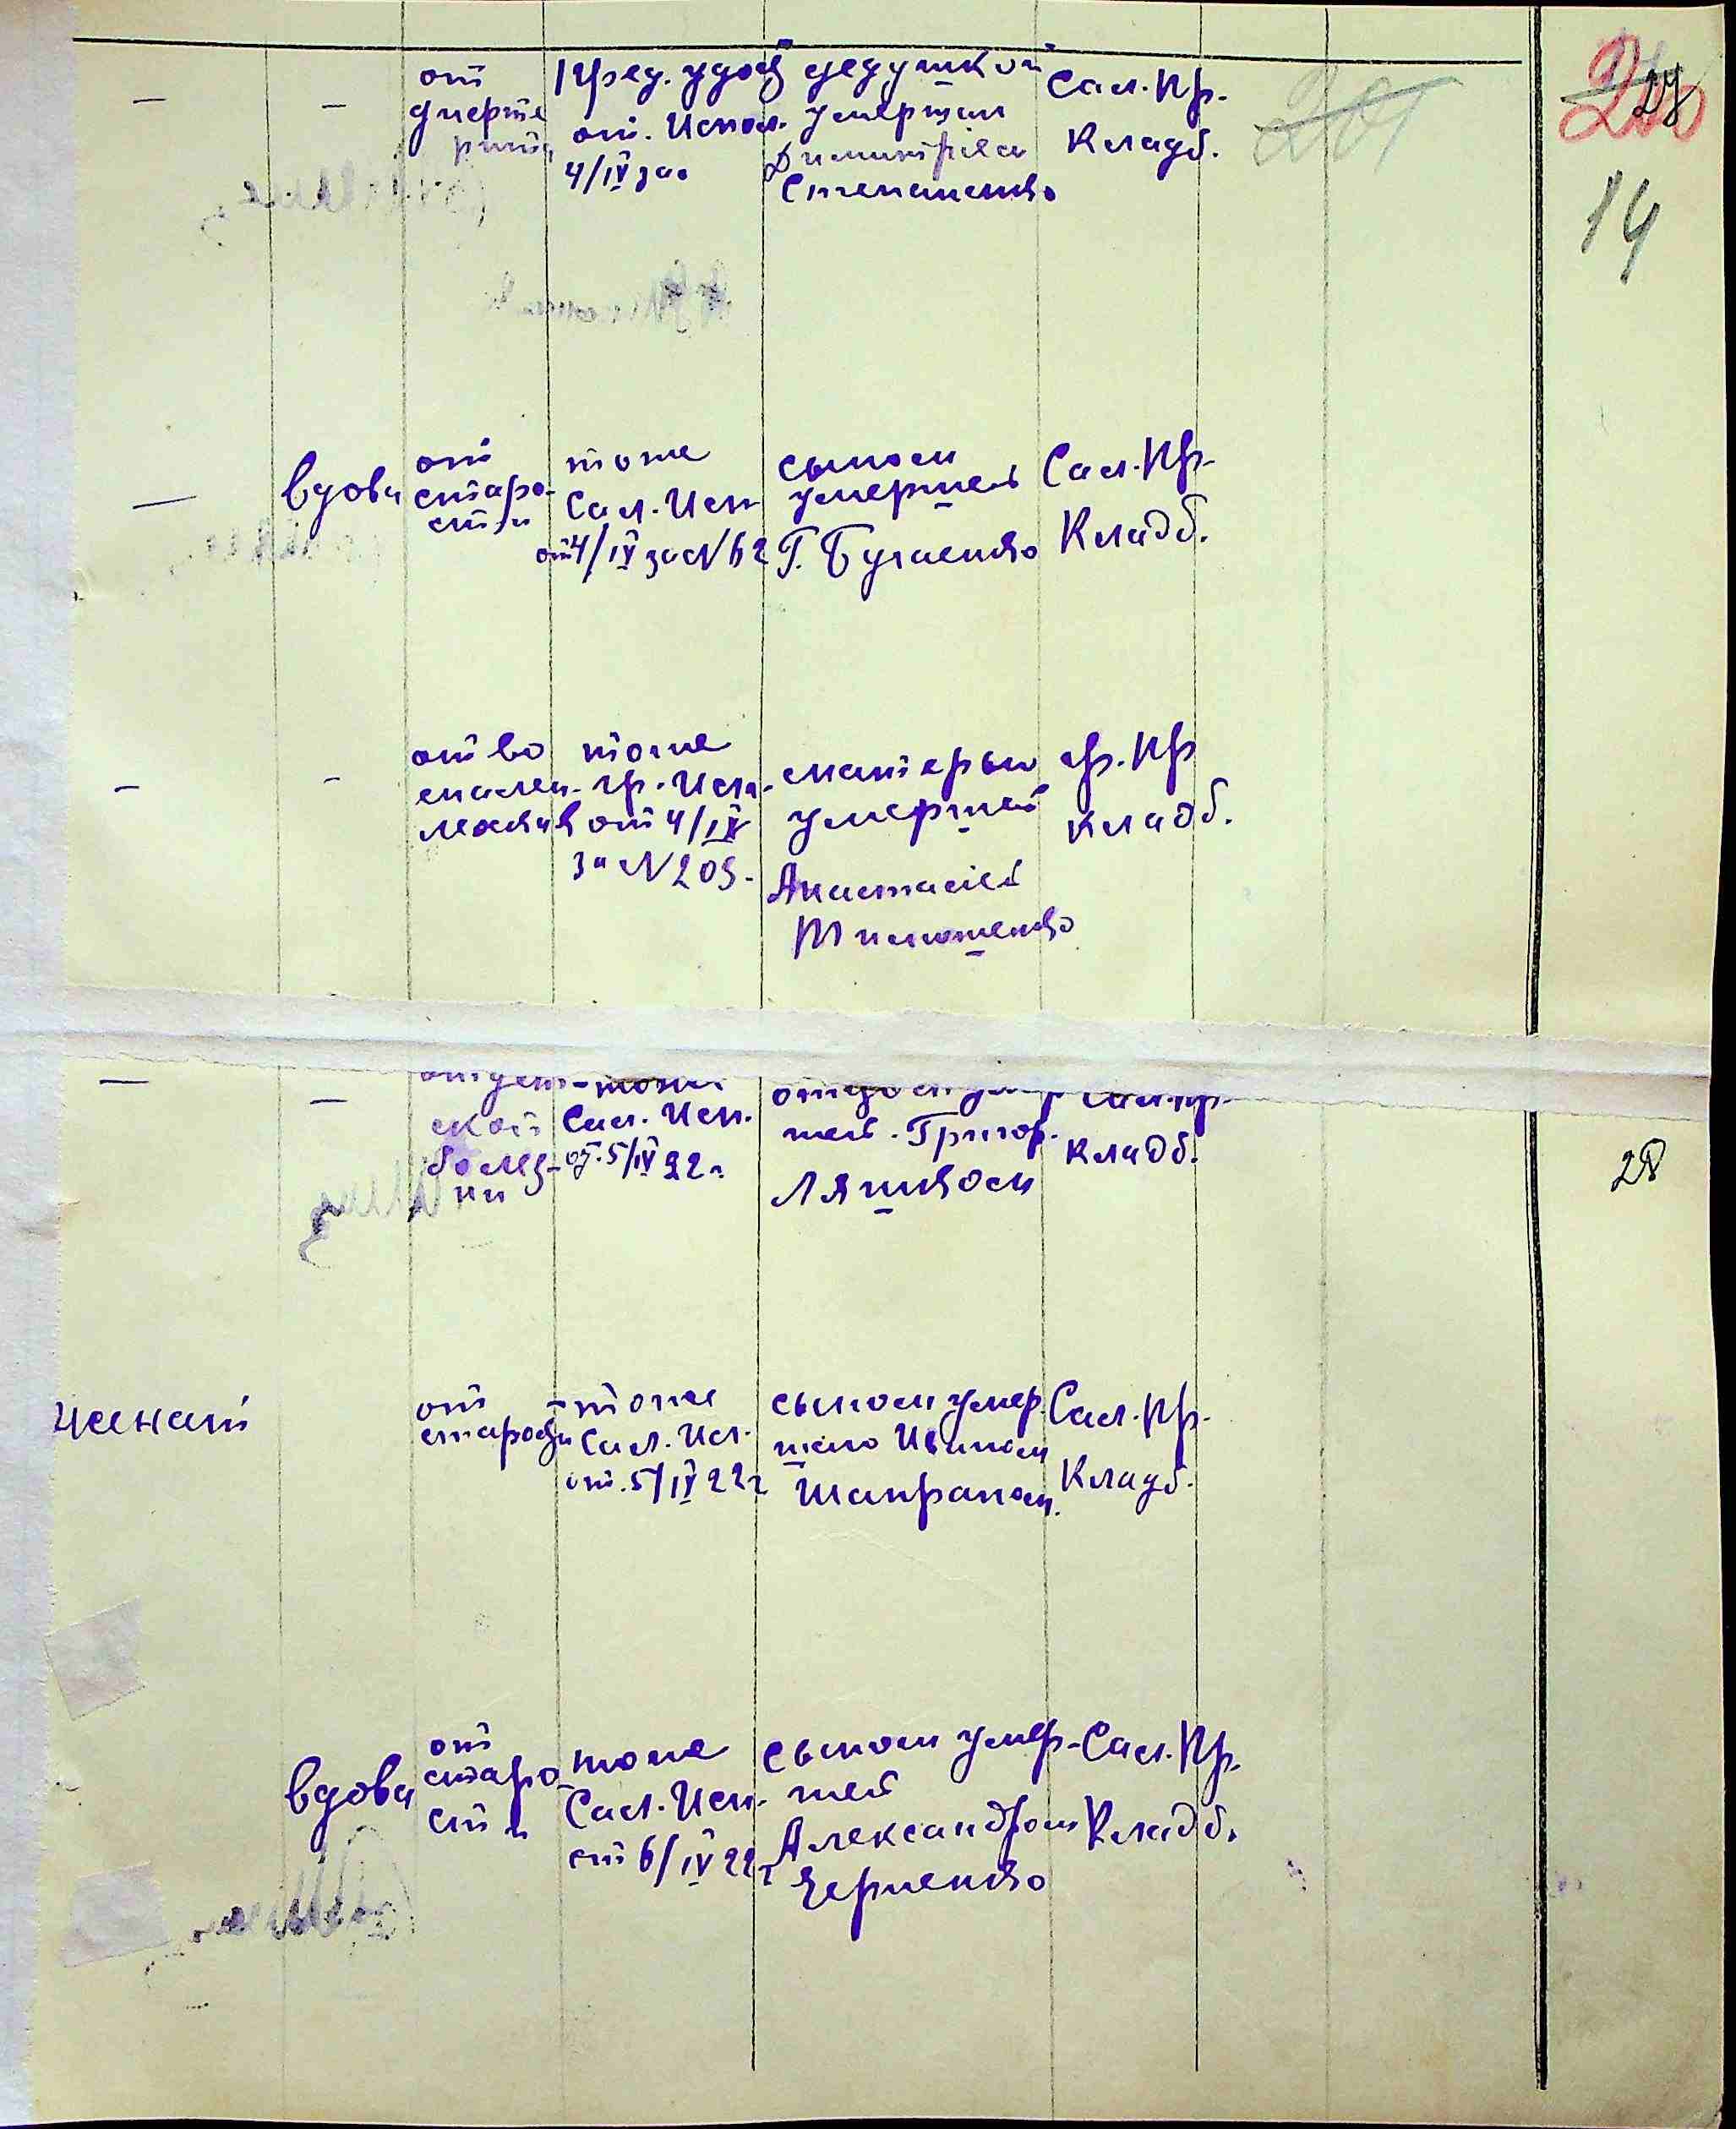 от
дперте
рита
Пред. удос
от. Испол.
4/IV за
дедушкой
умершая
Димитрием
Степаненко
Сал. пр.
Кладб.
201
27
14
вдова
от
старо-
сти
тоже
Сал. Исп
от 4/IV за N 62
сыном
умершей
Г. Бугаенко
Сал. Пр.
Кладб.
от во
спален.
легких
тоже
гр. Исп.
от 4/IV
за N 203.
матерью
умершей
Анастасией
Тимошенко
гр. Пр
кладб.
от дет-
ской
болез-
ни
тоже
Сал. Исп.
от. 5/IV 22 г.
отцом умер
шей. Григор.
Ляшком
Сал. пр.
кладб.
28
женат
от
старости
тоже
Сал. Исп.
от. 5/IV 22 г
сыном умер.
шего Иваном
Шапраном.
Сал. пр.
Кладб.
вдова
от
старо
сти
тоже
Сал. Исп.
от 6/IV 22 г
сыном умер-
шей
Александром
Черненко
Сал. Пр.
Кладб.